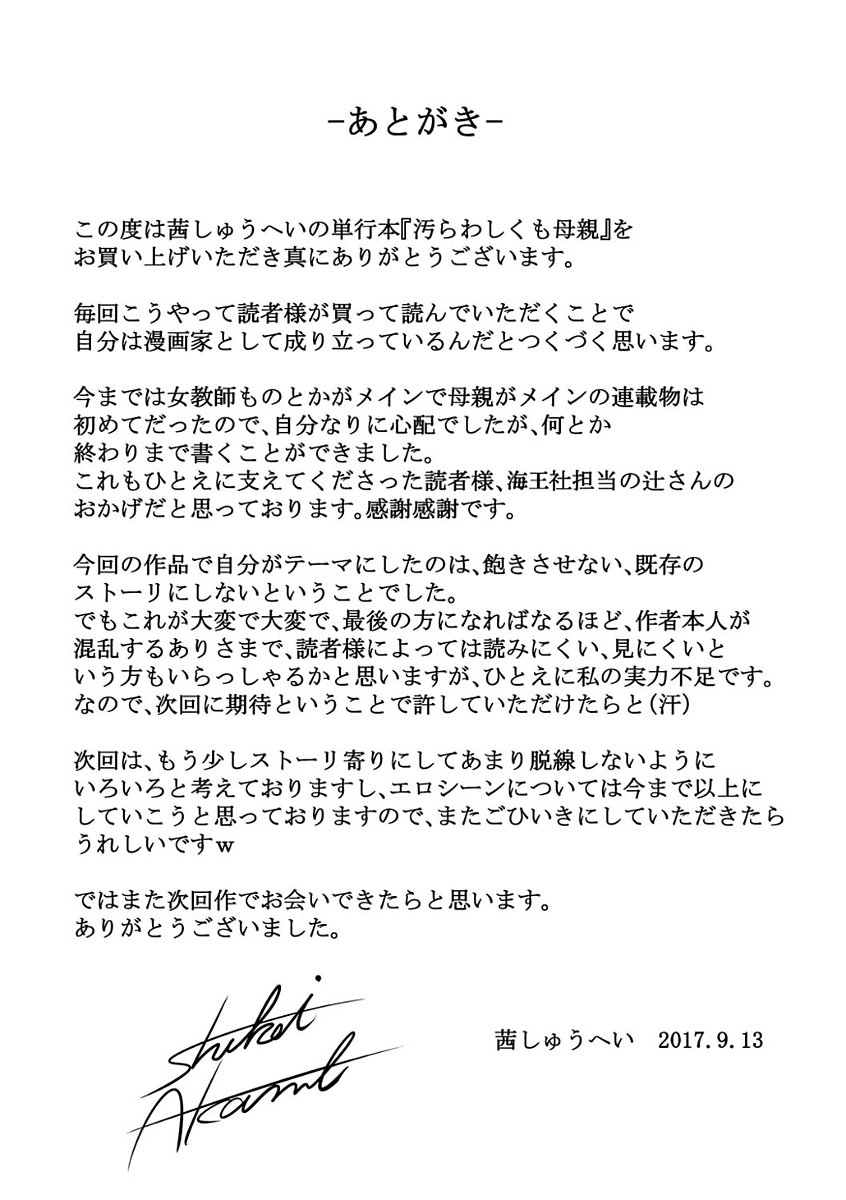 -あとがき-
この度は茜しゅうへいの単行本『汚らわしくも母親』を
お買い上げいただき真にありがとうございます。
毎回こうやって読者様が買って読んでいただくことで
自分は漫画家として成り立っているんだとつくづく思います。
今までは女教師ものとかがメインで母親がメインの連載物は
初めてだったので、自分なりに心配でしたが、何とか
終わりまで書くことができました。
これもひとえに支えてくださった読者様、海王社担当の辻さんの
おかげだと思っております。感謝感謝です。
今回の作品で自分がテーマにしたのは、飽きさせない、既存の
ストーリにしないということでした。
でもこれが大変で大変で、最後の方になればなるほど、作者本人が
混乱するありさまで、読者様によっては読みにくい、見にくいと
いう方もいらっしゃるかと思いますが、ひとえに私の実力不足です。
なので、次回に期待ということで許していただけたらと(汗)
次回は、もう少しストーリ寄りにしてあまり脱線しないように
いろいろと考えておりますし、エロシーンについては今まで以上に
していこうと思っておりますので、またごひいきにしていただきたら
うれしいですｗ
ではまた次回作でお会いできたらと思います。
ありがとうございました。
茜しゅうへい 2017.9.13